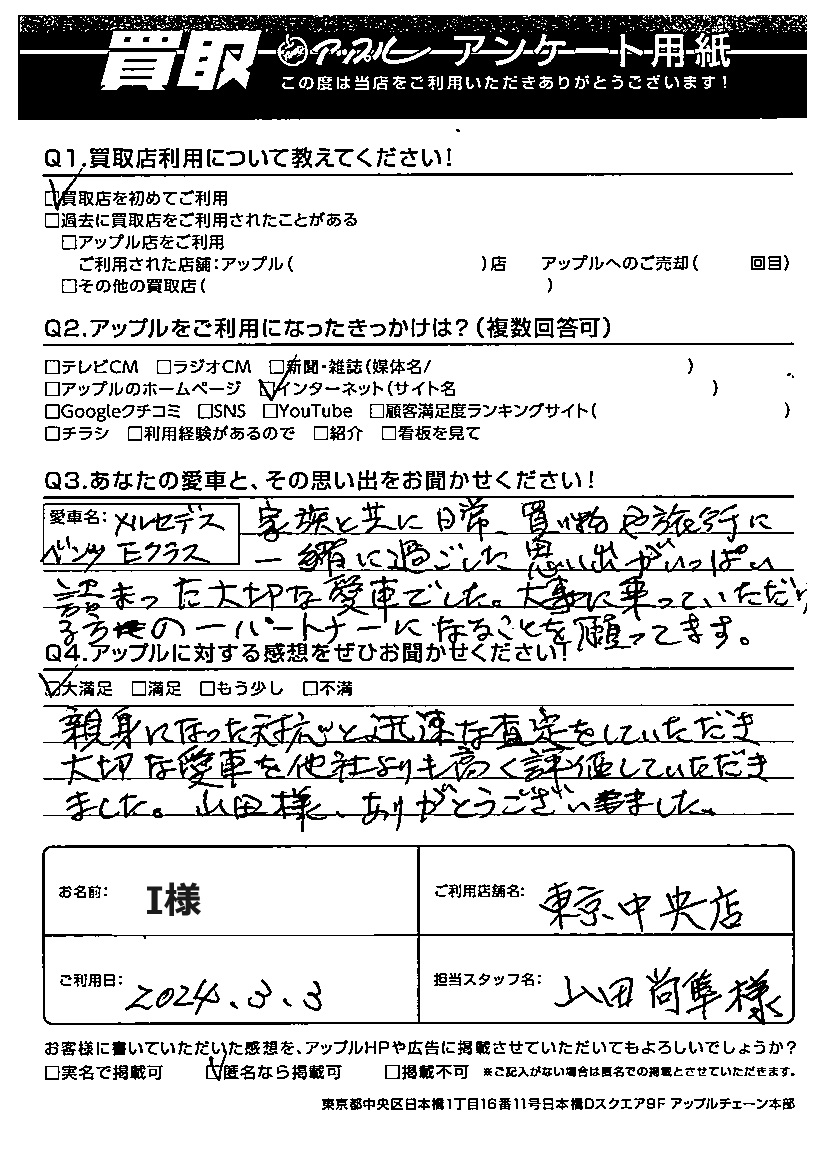 買取 アップル アンケート用紙
この度は当店をご利用いただきありがとうございます!
Q1.買取店利用について教えてください!
☑買取店を初めてご利用
□過去に買取店をご利用されたことがある
□アップル店をご利用
ご利用された店舗:アップル( )店 アップルへのご売却( 回目)
□その他の買取店( )
Q2.アップルをご利用になったきっかけは?(複数回答可)
□テレビCM □ラジオCM □新聞・雑誌(媒体名/ )
□アップルのホームページ ☑インターネット(サイト名 )
□Googleクチコミ □SNS □YouTube □顧客満足度ランキングサイト( )
□チラシ □利用経験があるので □紹介 □看板を見て
Q3.あなたの愛車と、その思い出をお聞かせください!
愛車名: メルセデス 家族と共に日常、買い物や旅行に
ベンツ Eクラス 一緒に過ごした思い出がいっぱい
詰まった大切な愛車でした。大事に乗っていただけ
る方の一パートナーになることを願ってます。
Q4.アップルに対する感想をぜひお聞かせください!
☑大満足 □満足 □もう少し □不満
親身になった対応と迅速な査定をしていただき
大切な愛車を他社よりも高く評価していただき
ました。山田様、ありがとうございました。
お名前: I様 ご利用店舗名: 東京中央店
ご利用日: 2024.3.3 担当スタッフ名: 山田尚隼様
お客様に書いていただいた感想を、アップルHPや広告に掲載させていただいてもよろしいでしょうか?
□実名で掲載可 ☑匿名なら掲載可 □掲載不可 ※ご記入がない場合は匿名での掲載とさせていただきます。
東京都中央区日本橋1丁目16番11号日本橋Dスクエア9F アップルチェーン本部